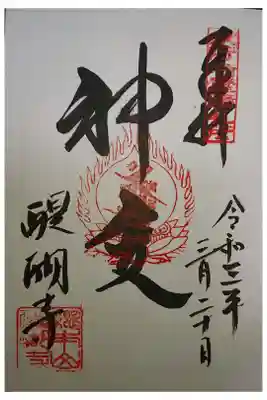 奉拝
令和三年
三月二十日
神変
醍醐寺